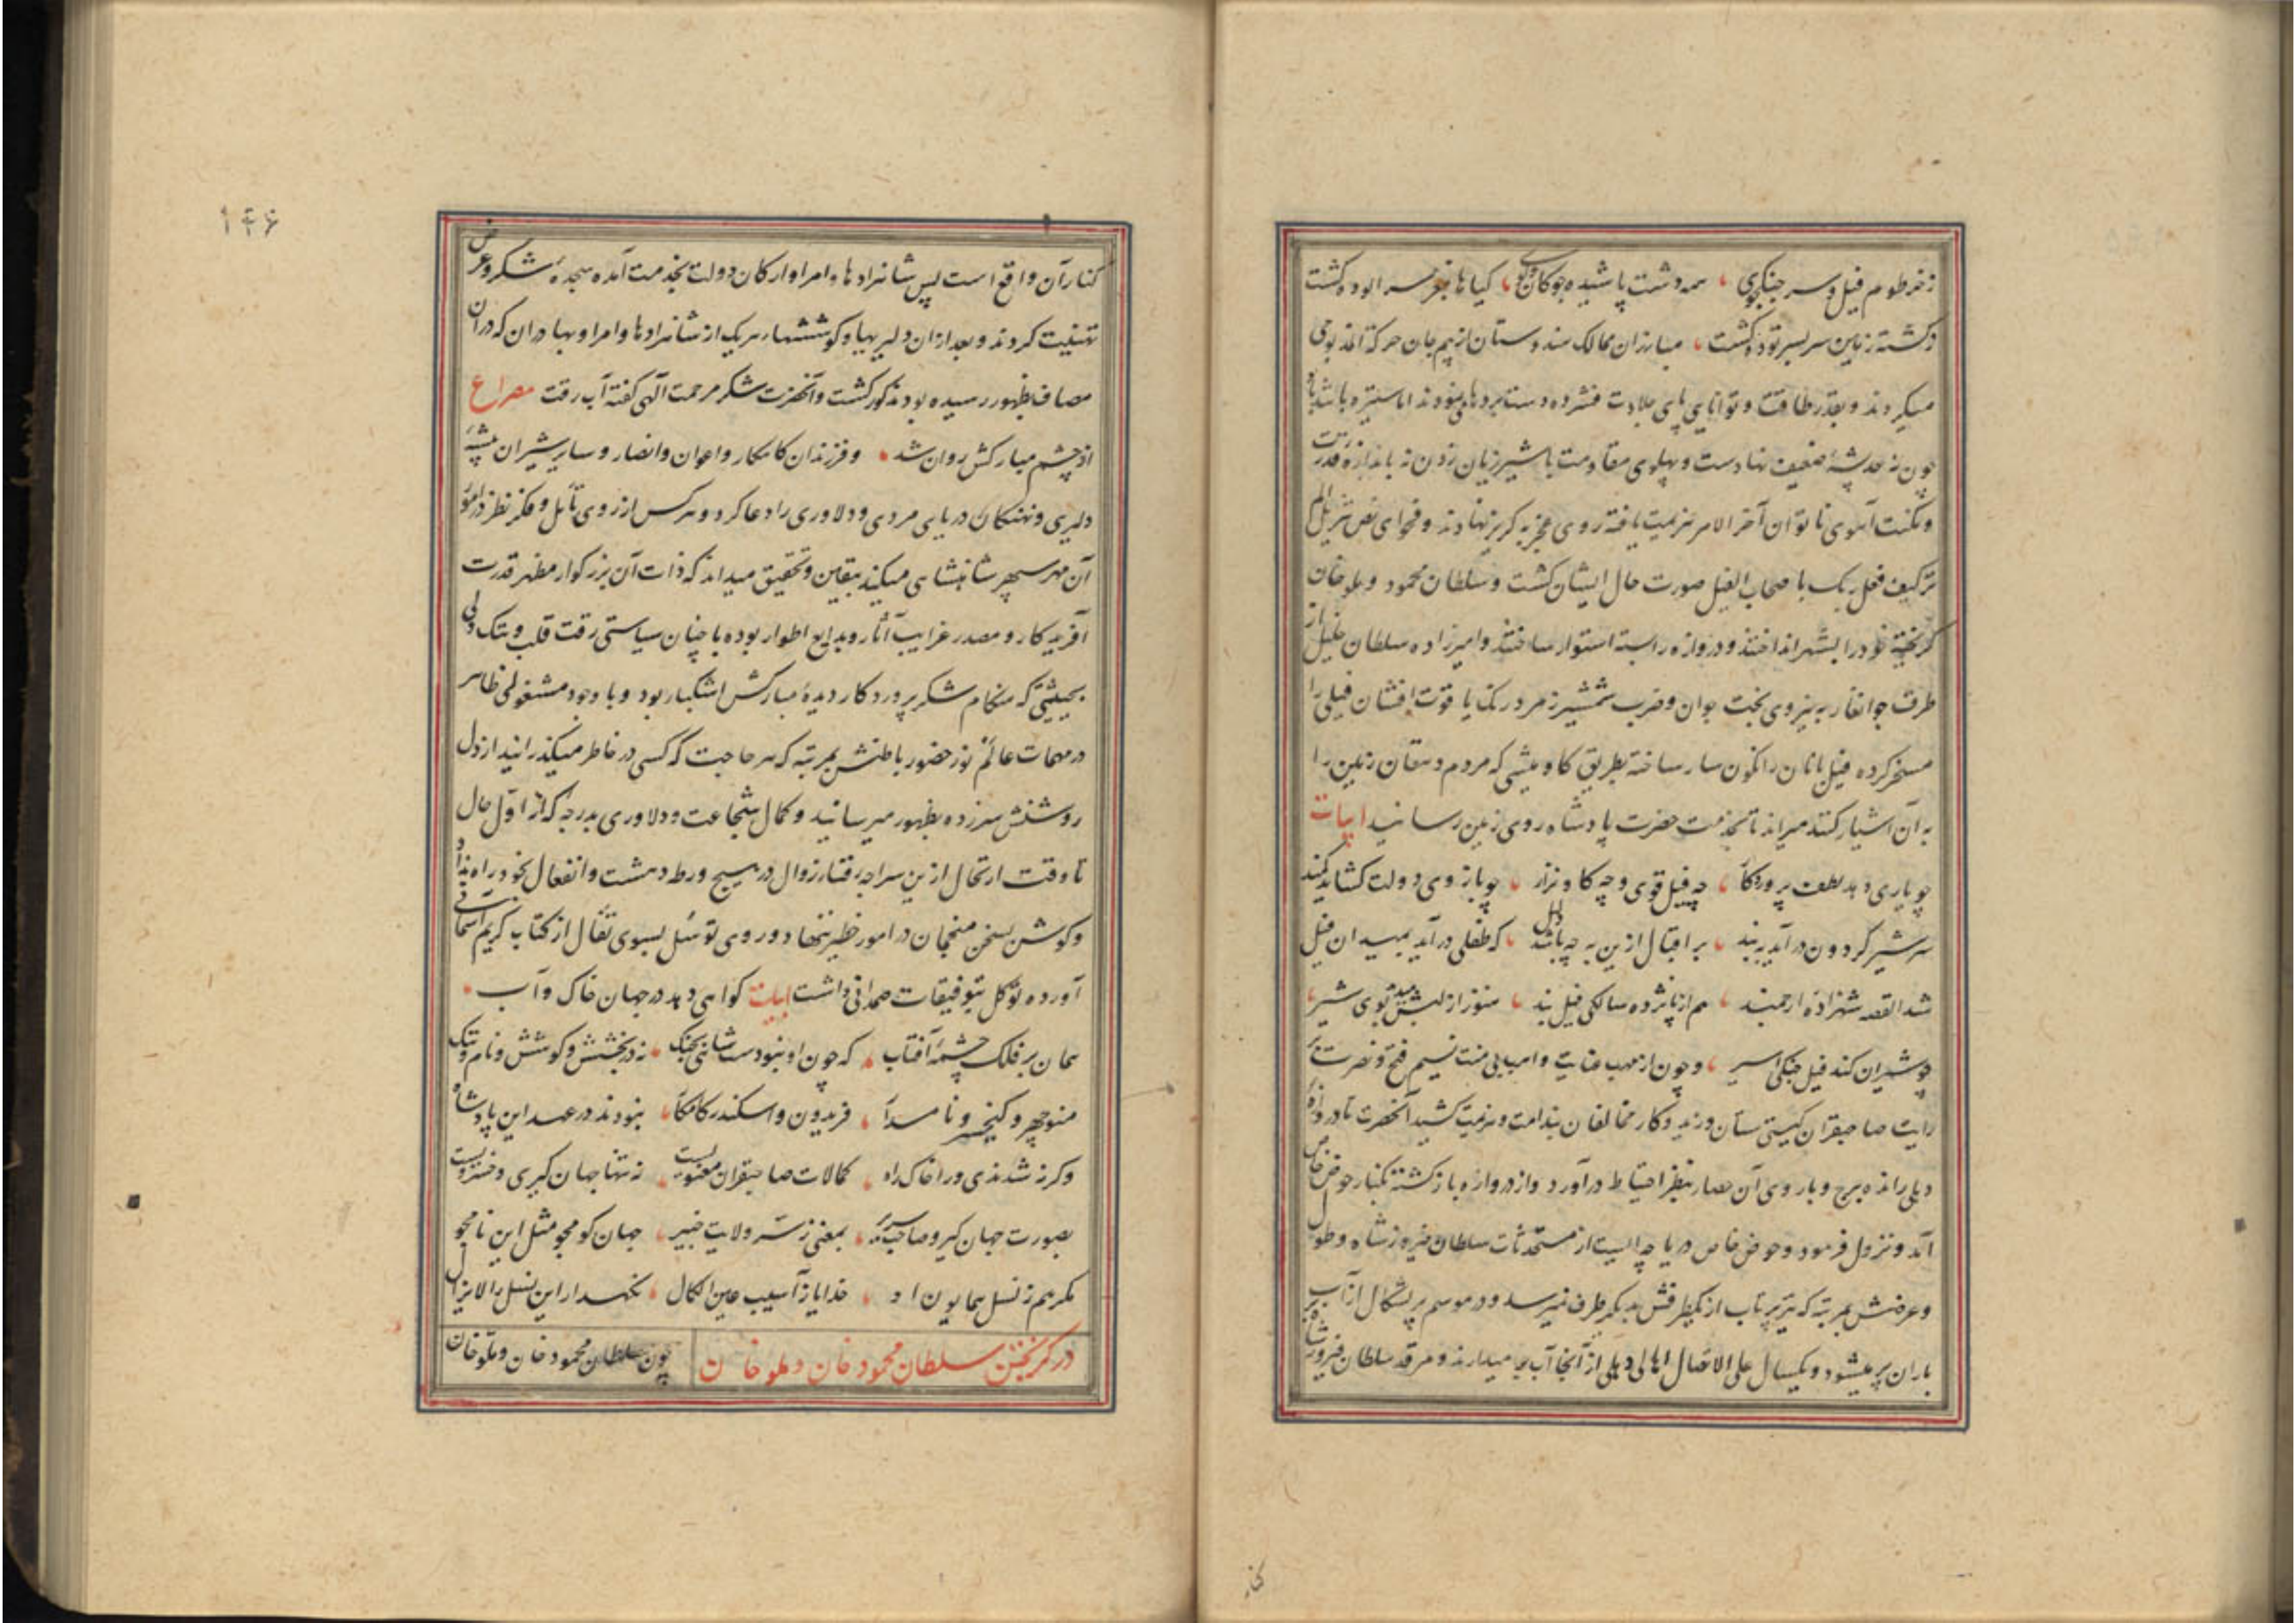 ز خرطوم فیل و سر جنکجوی همه دشت پاشیده چوکان و کوی کیاها بمغز سر الوده کشت
ز کشته زمین سر بسر توده کشت مبارزان ممالک هندوستان از بیم جان حرکة المذبوحی
میکردند و بقدر طاقت و توانایی پای جلادت فشرده دست بردها می نمودند اما ستیزه با شدباد
چون نه حد پشهٔ ضعیف نهادست و پهلوی مقاومت با شیر ژیان زدن نه باندازه قدرت
و مکنت آهوی ناتوان آخر الامر هزیمت یافته روی عجز به کریز نهادند و فحوای نص تنزیل الم
تر کیف فعل ربک باصحاب الفیل صورت حال ایشان کشت و سلطان محمود و ملو خان
کریخته خود را بشهر انداختند و دروازه را بسته استوار ساختند و امیرزاده سلطان خلیل از
طرف جوانغار به نیروی بخت جوان و ضرب شمشیر زمرد رنک یاقوت افشان فیلی را
مسخر کرده فیل بانان را نکون سار ساخته بطریق کاومیشی که مردم دهقان زمین را
به آن اشیار کنند میراند تا بخدمت حضرت پادشاه روی زمین رسانید ابیات
چو یاری دهد لطف پروردکار چه فیل قوی و چه کاو نزار چو بازوی دولت کشاید کمند
سر شیر کردون در آید به بند بر اقبال ازین به چه باشد دلیل که طفلی در آید بمیدان فیل
شد القصه شهزادهٔ ارجمند هم از پانزده سالکی فیل بند هنوز از لبش میدمد بوی شیر
چو شیران کند فیل جنکی اسیر و چون از مهب عنایت وامیابی منت نسیم فتح و نصرت بر
رایت صاحبقران کیتی ستان وزید و کار مخالفان بندامت و هزیمت کشید آنحضرت تا دروازه
دهلی رانده برج و باروی آن حصار بنظر احتیاط درآورد و از دروازه بازکشته بکنار حوض خاص
آمد و نزول فرمود و حوض خاص دریاچه ایست از مستحدثات سلطان فیروز شاه و طول
و عرضش بمرتبهٔ که تیر پرتاب از یکطرفش بدیکر طرف نمیرسد و در موسم پرشکال از آب
باران پر میشود و یکسال علی الاتصال اهالی دهلی از آنجا آب بر میدارند و مرقد سلطان فیروز شاه بر
کنار
۱۴۶
کنار آن واقع است پس شاهزادها و امرا و ارکان دولت بخدمت آمده سجدهٔ شکر و عرض
تهنیت کردند و بعد از ان دلیریها و کوششهای هریک از شاهزادها و امرا و بهادران که در آن
مصاف بظهور رسیده بود مذکور کشت و آنحضرت شکر مرحمت الهی کفته آب رقت مصراع
از چشم مبارکش روان شد و فرزندان کامکار و اعوان و انصار و سایر شیران بیشهٔ
دلیری و نهنکان دریای مردی و دلاوری را دعا کرد و هرکس از روی تأمل و فکر نظر در امور
آن مهر سپهر شاهنشاهی میکند بیقین و تحقیق میداند که ذات آن بزرکوار مظهر قدرت
آفریدکار و مصدر غرایب آثار و بدایع اطوار بوده با چنان سیاستی رقت قلب و تنک دلی
بحیثیتی که هنکام شکر پروردکار دیدهٔ مبارکش اشکبار بود و با وجود مشغولی ظاهر
در مهمات عالم نور حضور باطنش بمرتبه که هر حاجت که کسی در خاطر میکذرانید از دل
روشنش سر زده بظهور میرسانید و کمال شجاعت و دلاوری بدرجه که از اول حال
تا وقت ارتحال ازین سراچه رفتار زوال در هیچ ورطه دهشت و انفعال بخود راه نداد
و کوش بسخن منجمان در امور خطیر ننهاد و روی توسل بسوی تفأل از کتاب کریم آسمانی
آورده توکل بتوفیقات صمدانی داشت ابیات کواهی دهد در جهان خاک و آب
همان بر فلک چشمهٔ آفتاب که چون او نبودست شاهی بجنک نه در بخشش و کوشش و نام و ننک
منوچهر و کیخسرو نامدار فریدون و اسکندر کامکار نبودند در عهد این پادشاه
وکرنه شدندی ورا خاک راه کمالات صاحبقران معنویست نه تنها جهان کیری و خسرویست
بصورت جهان کیر و صاحب سریر بمعنی ز سر ولایت خبیر جهان کو مجو مثل این نامجو
مکر هم ز نسل همایون او خدایا ز آسیب عین الکمال نکهدار این نسل را لایزال
در کریختن سلطان محمود خان و ملو خان چون سلطان محمود خان و ملو خان